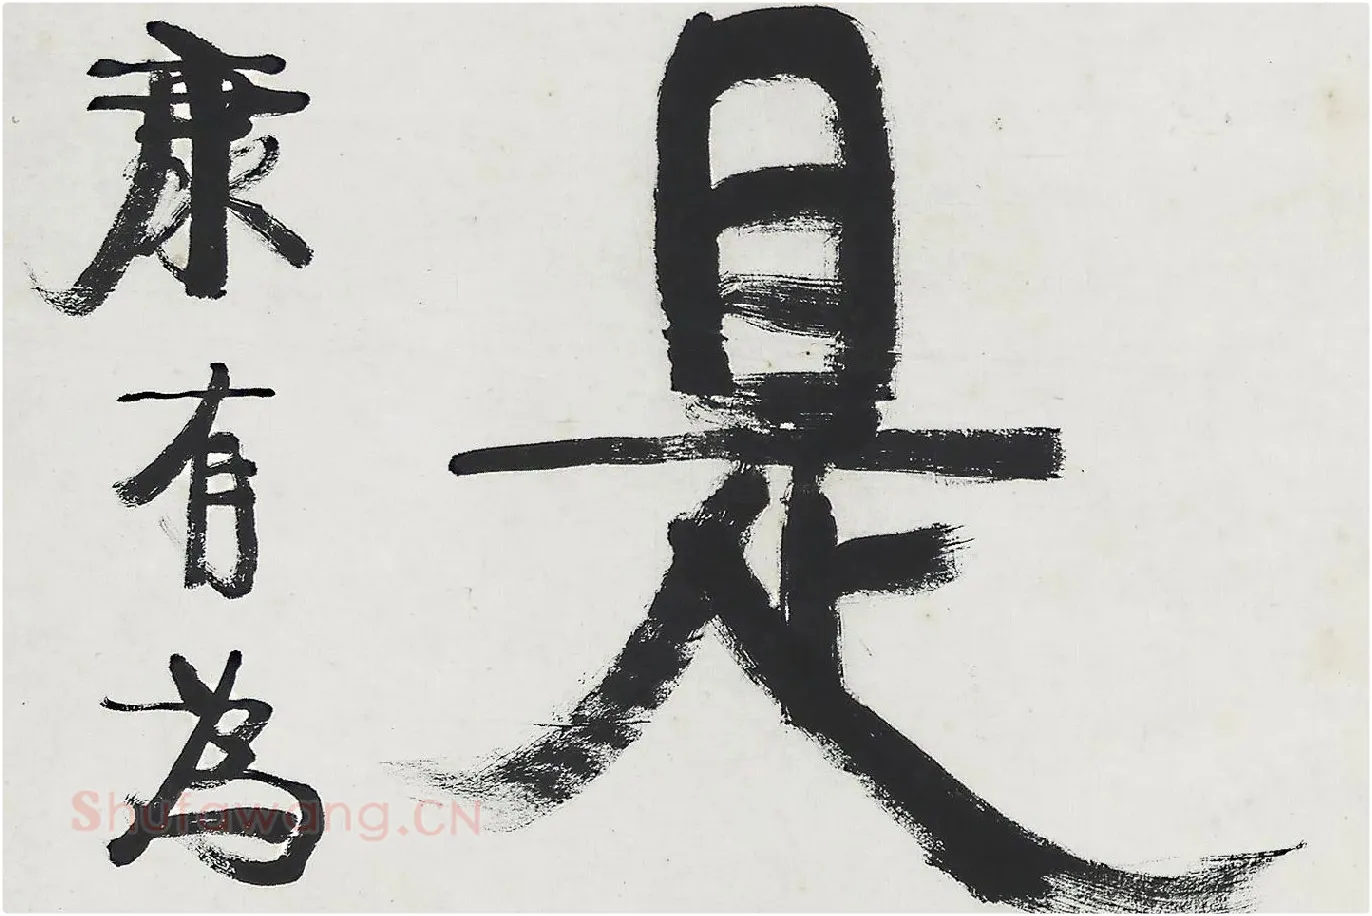 是
康有為
Shufawang.CN